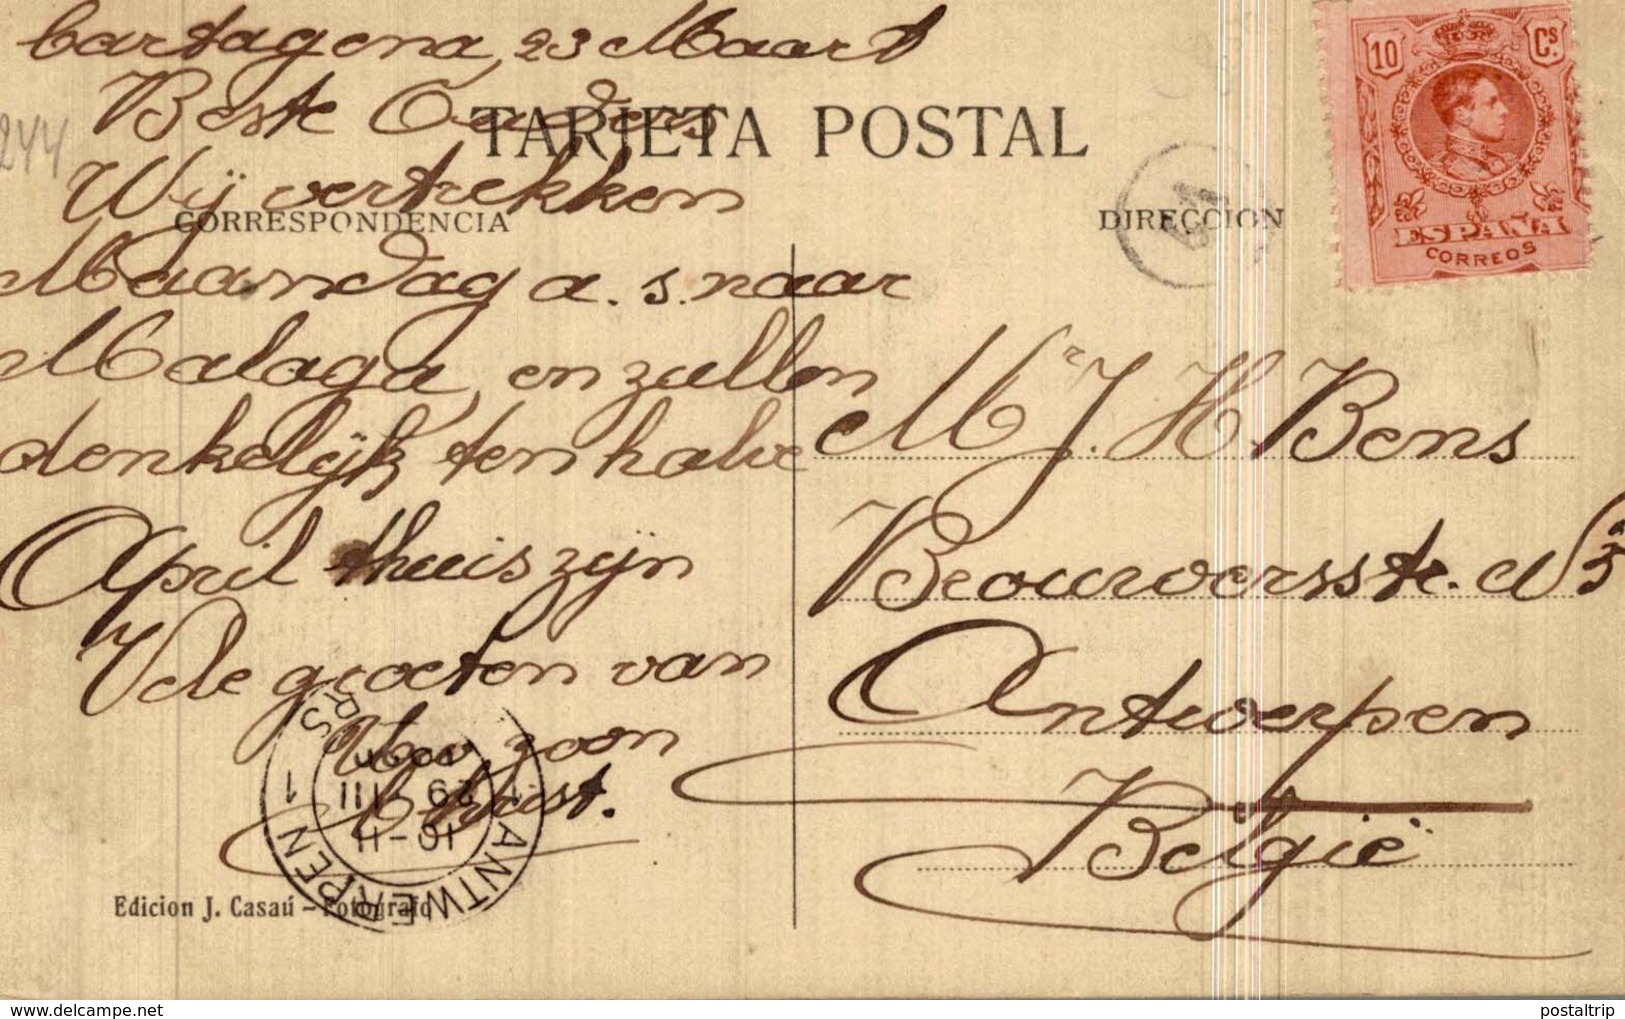 Cartagena, 23 Maart
Beste Ouders
TARJETA POSTAL
Wij vertrekken
CORRESPONDENCIA
Maandag a.s. naar
Malaga, en zullen
denkelijk ten halve
April thuis zijn
Vele groeten van
Uw zoon
Edicion J. Casaú – Fotografo
ANTWERPEN 1
10-11
29 III
ANVERS 1
DIRECCION
10 Cs
ESPAÑA
CORREOS
Mr J. H. Bens
Brouwersstr. No 5
Antwerpen
België
244
postaltrip